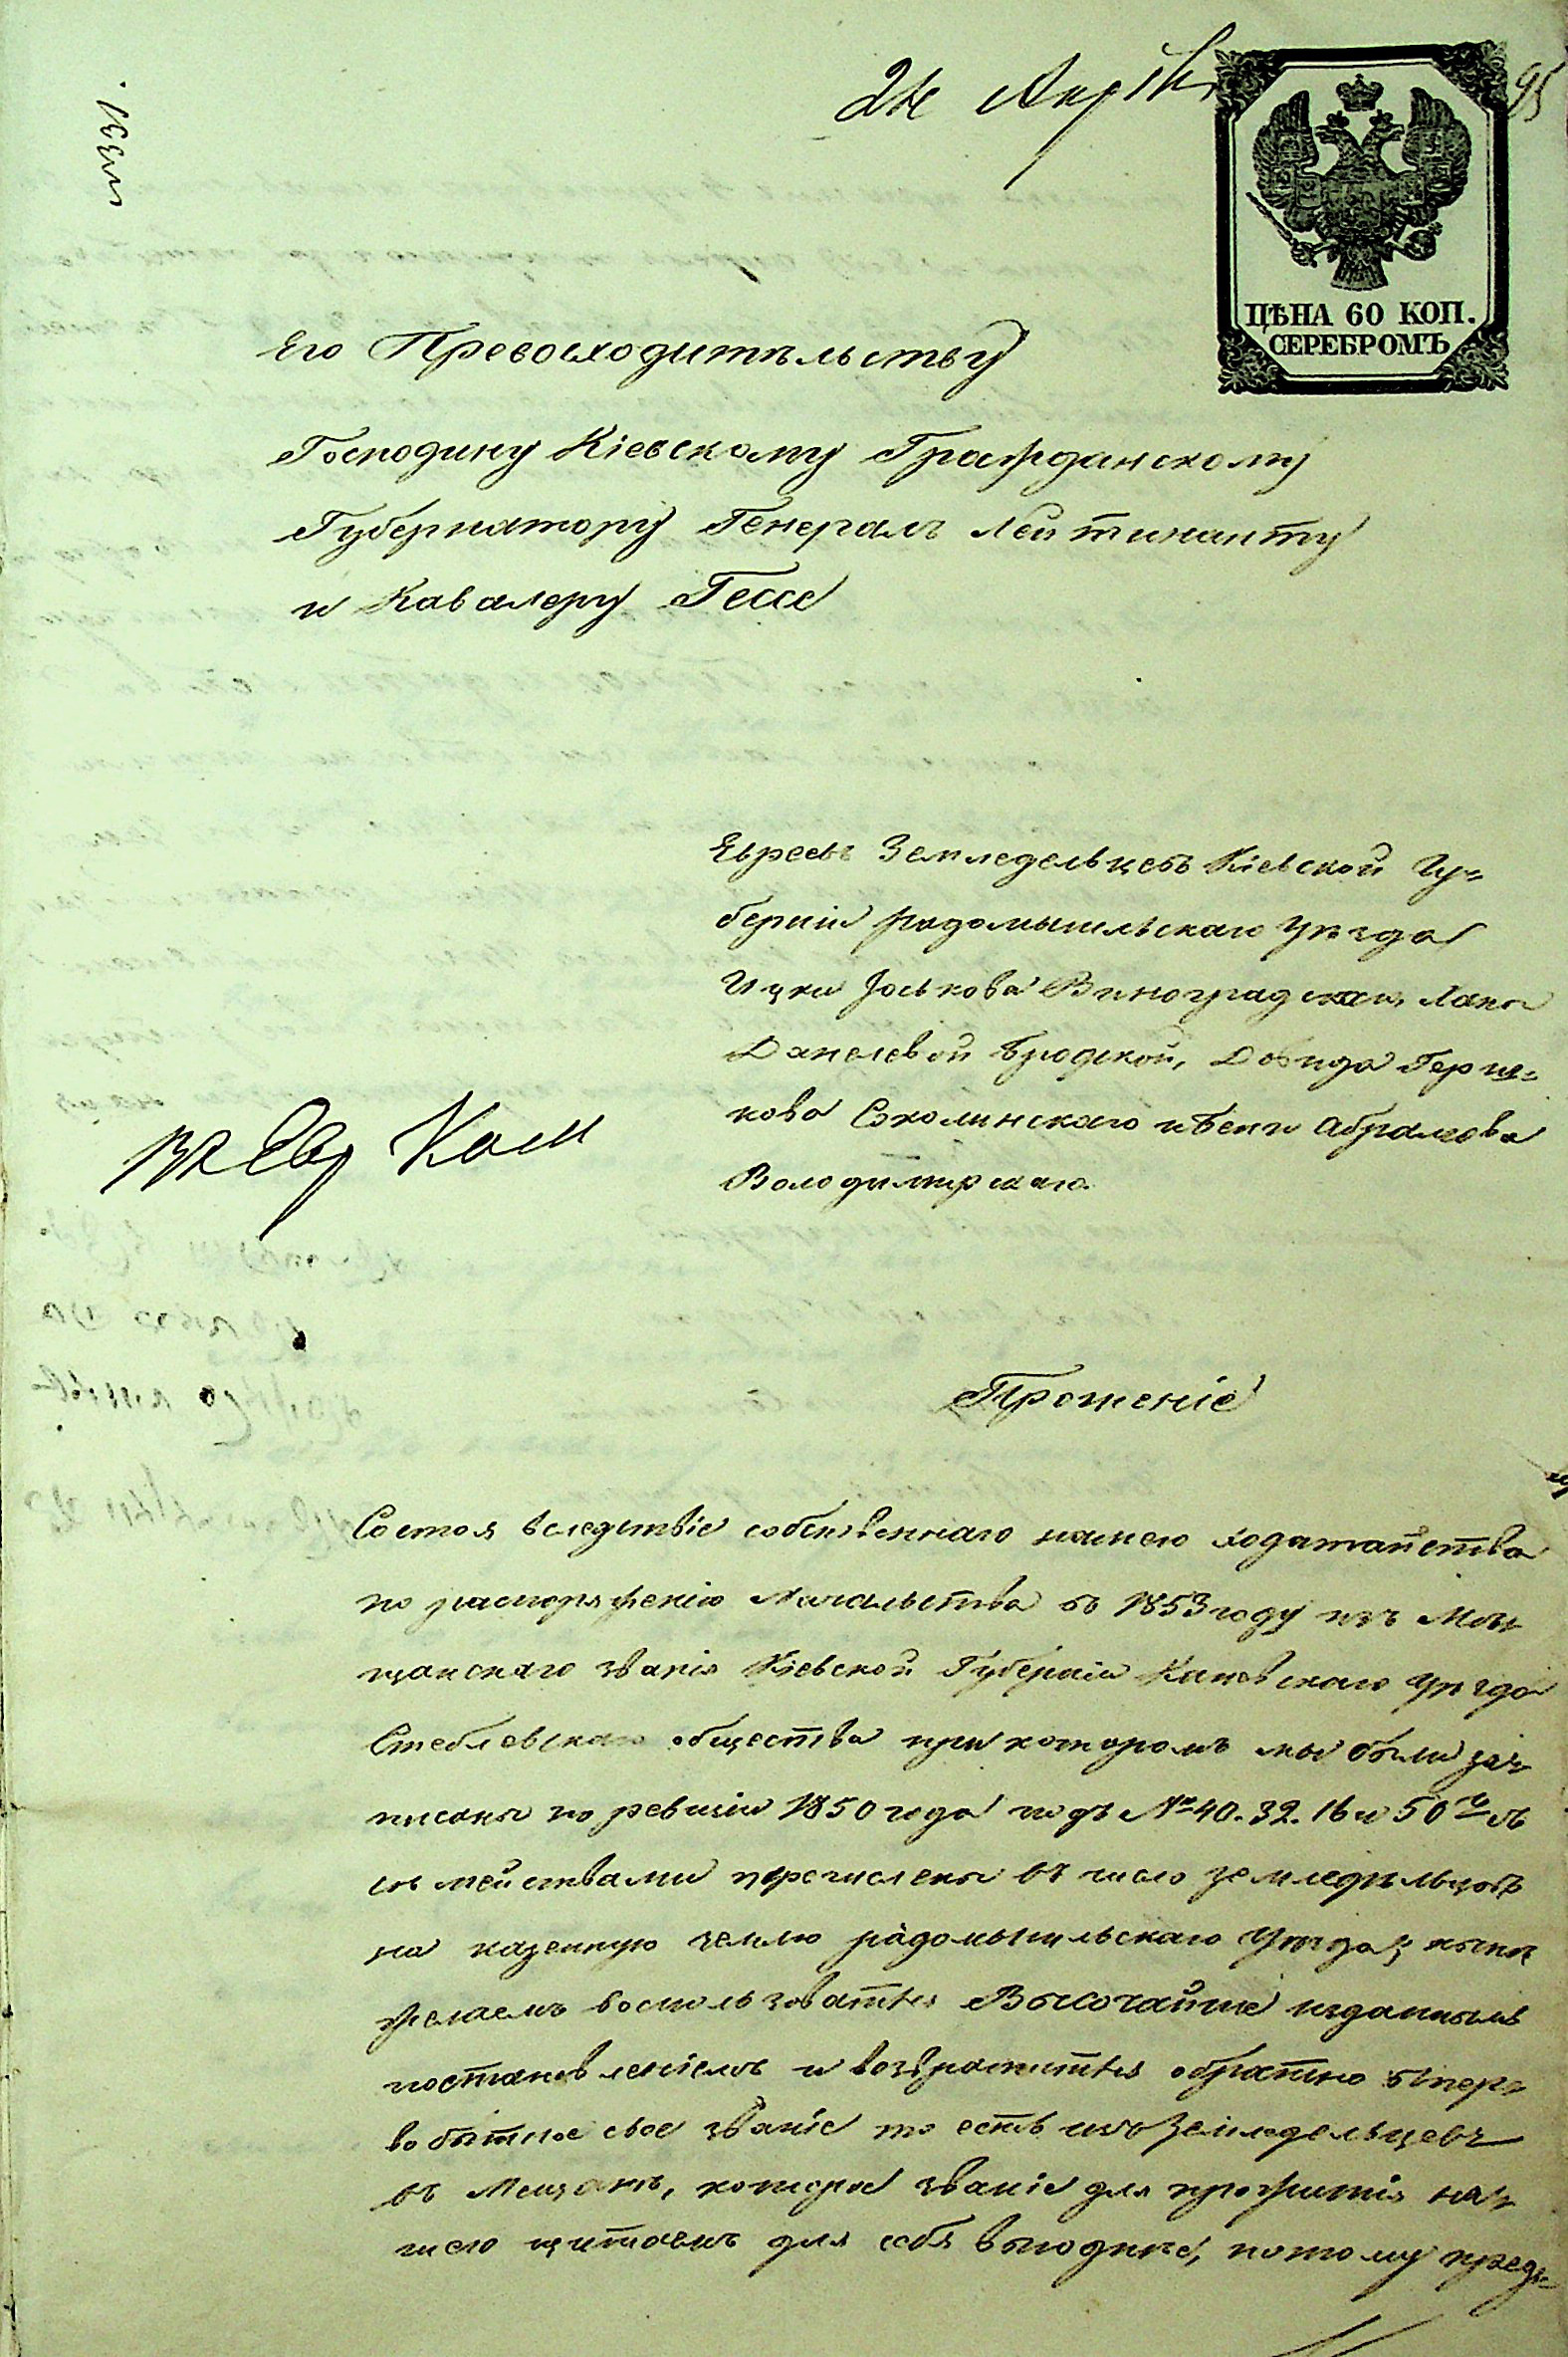 24 Апрѣл
95
ЦѢНА 60 КОП.
СЕРЕБРОМЪ
Его Превосходительству
Господину Кіевскому Гражданскому
Губернатору Генералъ Лейтинанту
и Кавалеру Гессе
Евреевъ Земледельцевъ Кіевской Гу-
берніи радомышльскаго Уѣзда
Ицки Іоськова Виноградскаго,
Данелевой Бродской, Довида Герш-
кова Сохолинскаго и Бени Абрамова
Володимирскаго.
въ Евр Ком
Прошеніе
Состоя вследствіе собственнаго нашего ходатайства
по распоряженію Начальства въ 1853 году изъ Мѣ-
щанскаго званія Кіевской Губерніи Каневскаго Уѣзда
Стеблевскаго общества при которомъ мы были за-
писаны по ревизіи 1850 года подъ № 40. 32. 16 и 50 съ
сѣмействами перечислены въ число земледѣльцовъ
на казенную землю радомышльскаго Уѣзда; нынѣ
желаемъ воспользоватся Высочайше изданнымъ
постановленіемъ и возвратится обратно въ пер-
вобытное свое званіе то есть изъ Земледельцевъ
въ Мещанъ, которое званіе для прожитія на-
шего щитаемъ для себя выгодне, потому предъ-